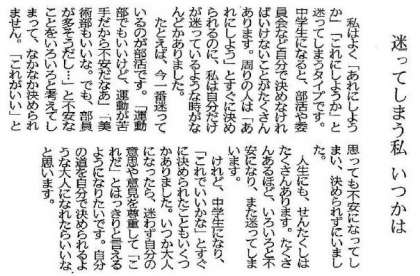 迷ってしまう私 いつかは
私はよく「あれにしよう
か」「これにしようか」と
迷ってしまうタイプです。
中学生になると、部活や委
員会など自分で決めなけれ
ばいけないことがたくさん
あります。周りの人は「あ
れにしよう」とすぐに決め
られるのに、私は自分だけ
が迷っているような時がな
んどかありました。
たとえば、今一番迷って
いるのが部活です。「運動
部でもいいけど、運動が苦
手だから不安だなあ」「美
術部もいいな。でも、部員
が多そうだし…」と不安な
ことをいろいろと考えてし
まって、なかなか決められ
ません。「これがいい」と
思っても不安になってし
まい、決められずにいまし
た。
人生にも、せんたくしは
たくさんあります。たくさ
んあるほど、いろいろと不
安になり、また迷ってしま
います。
けれど、中学生になり、
「これでいいかな」とすぐ
に決められたこともいくつ
かありました。いつか大人
になったら、迷わず自分の
意思や意見を尊重して「こ
れだ」とはっきりと言える
ようになりたいです。自分
の道を自分で決められるよ
うな大人になれたらいいな、
と思います。